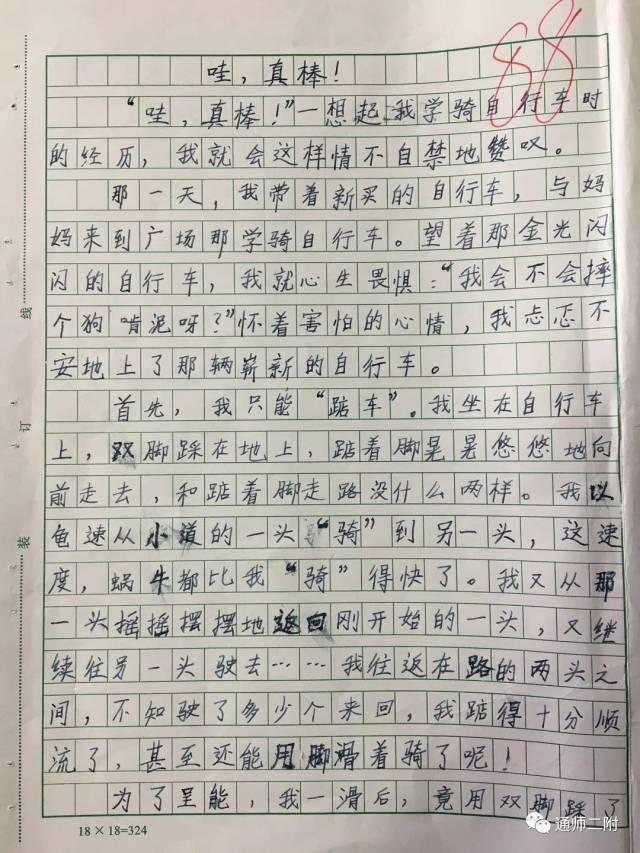 88
哇，真棒！
“哇，真棒！”一想起我学骑自行车时
的经历，我就会这样情不自禁地赞叹。
那一天，我带着新买的自行车，与妈
妈来到广场那学骑自行车。望着那金光闪
闪的自行车，我就心生畏惧：“我会不会摔
个狗啃泥呀？”怀着害怕的心情，我忐忑不
安地上了那辆崭新的自行车。
首先，我只能“踮车”。我坐在自行车
上，双脚踩在地上，踮着脚晃晃悠悠地向
前走去，和踮着脚走路没什么两样。我以
龟速从小道的一头“骑”到另一头，这速
度，蜗牛都比我“骑”得快了。我又从那
一头摇摇摆摆地返回刚开始的一头，又继
续往另一头驶去……我往返在路的两头之
间，不知驶了多少个来回，我踮得十分顺
流了，甚至还能用脚滑着骑了呢！
为了呈能，我一滑后，竟用双脚踩了
18×18=324
线
订
装
通师二附